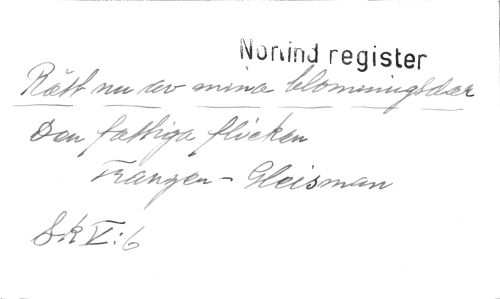 Norlind register
Rätt nu av mina blomningsdar
Den fattiga flicken
Franzén - Gleisman
Sk V:6